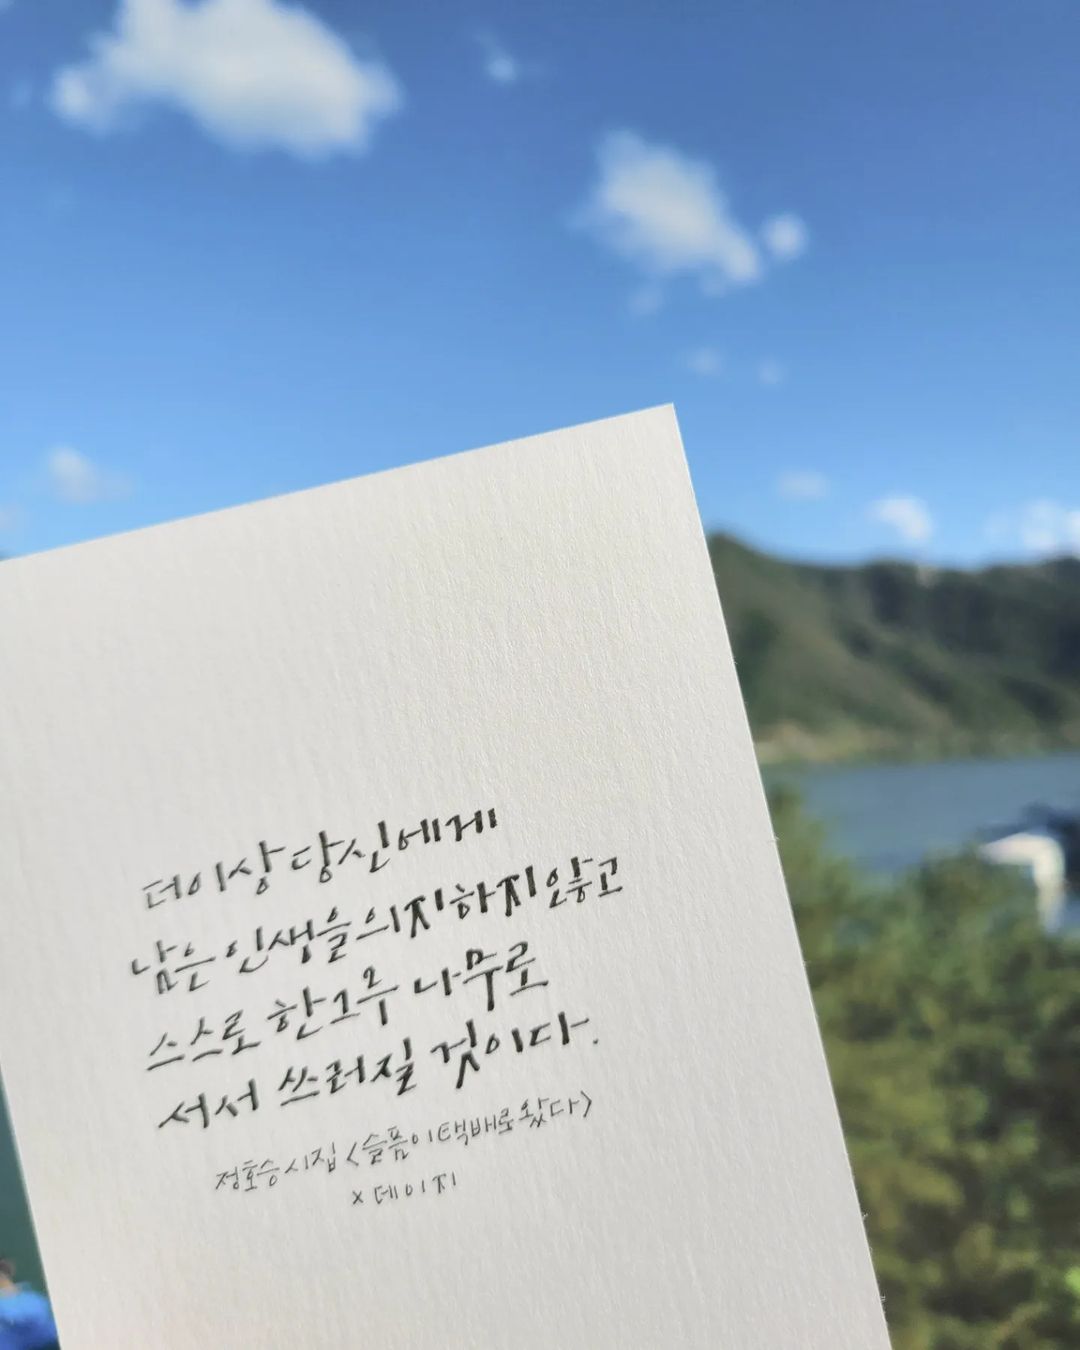 더이상 당신에게
남은 인생을 의지하지 않고
스스로 한그루 나무로
서서 쓰러질 것이다.
정호승 시집 <슬픔이 택배로 왔다>
x 데이지